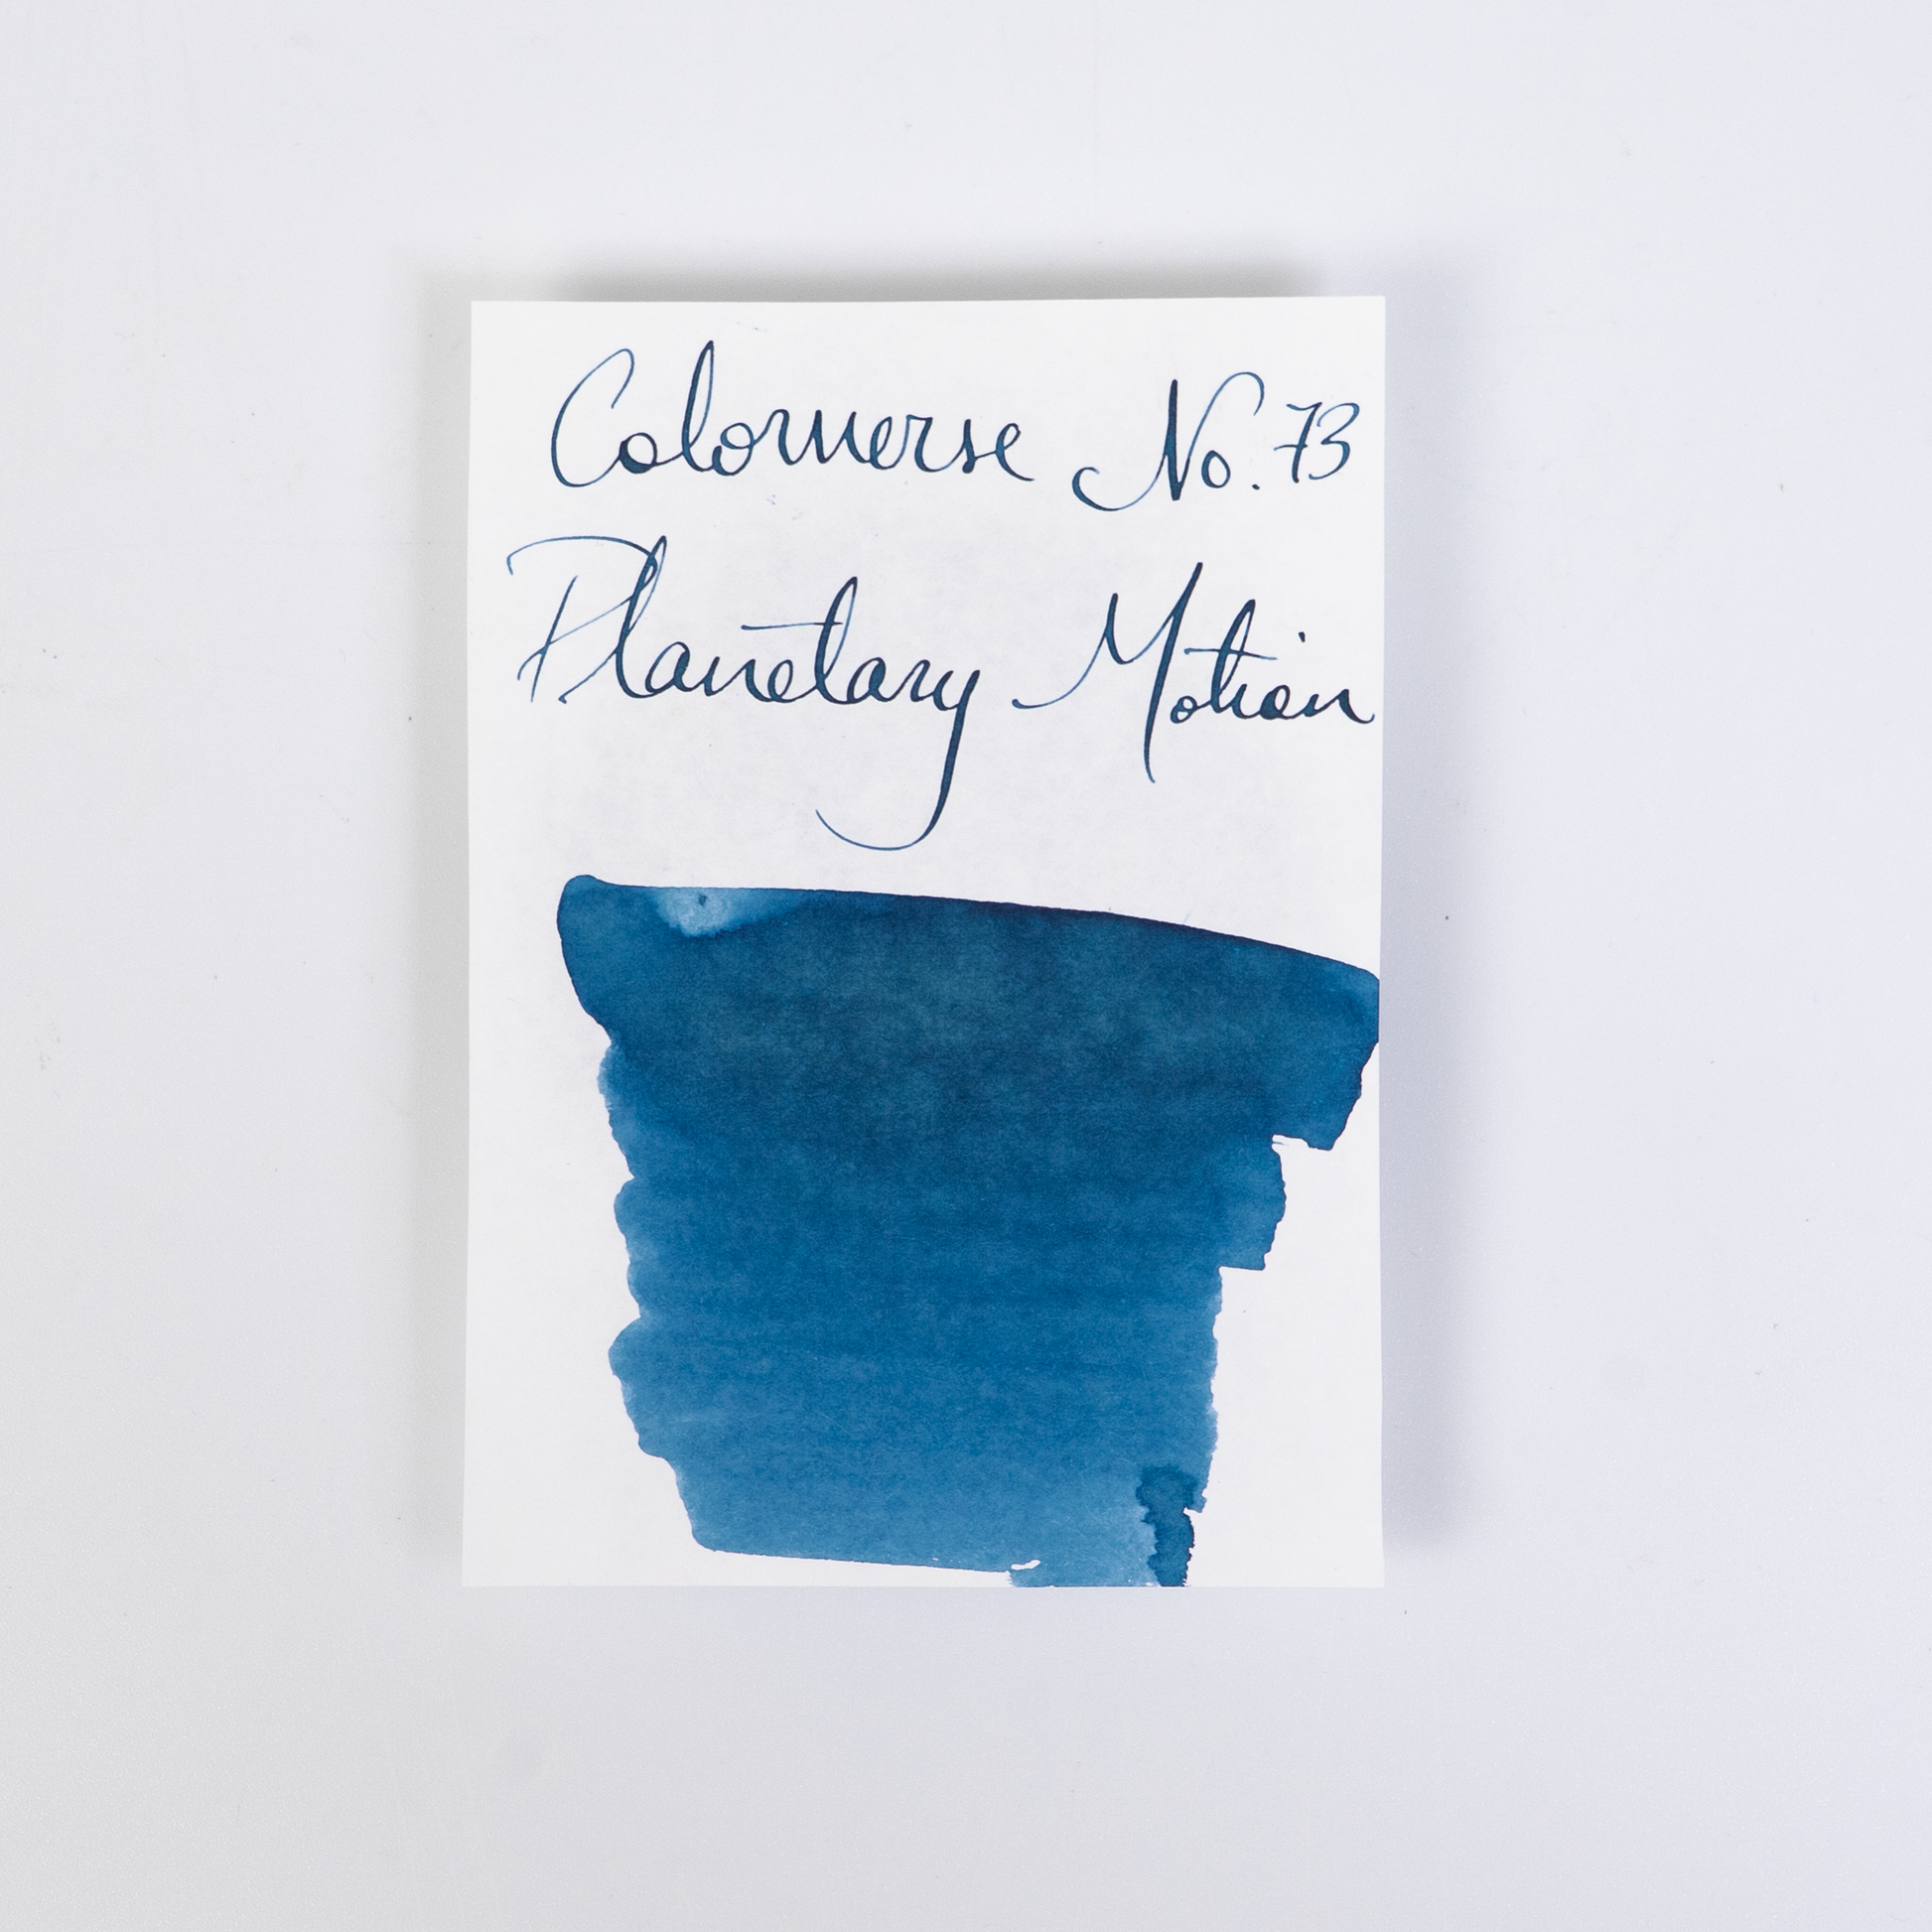 Colorverse No. 73
Planetary Motion